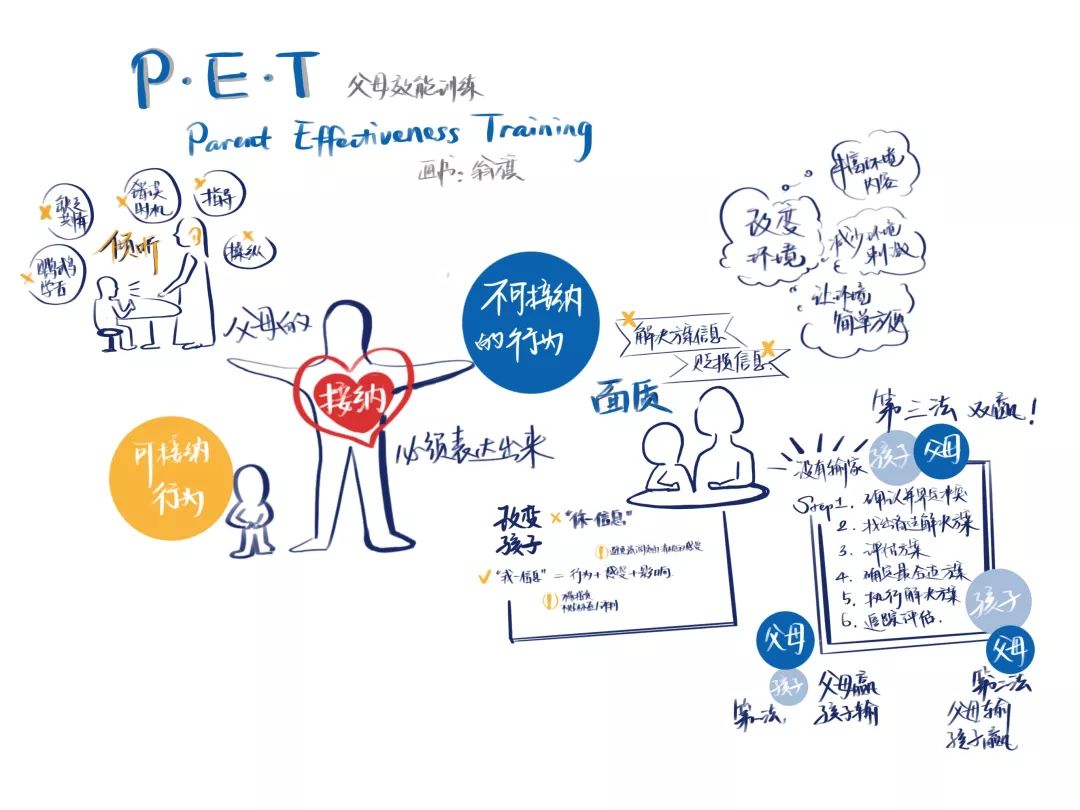 P·E·T 父母效能训练
Parent Effectiveness Training
画书：翁旗
缺乏
共情
错误
时机
指导
倾听
操纵
鹦鹉
学舌
父母的
接纳
必须表达出来
可接纳
行为
不可接纳
的行为
改变
环境
丰富环境
内容
减少环境
刺激
让环境
简单方便
解决方案信息
贬损信息
面质
改变
孩子
"你-信息"
"我-信息" = 行为+感受+影响
第三法 双赢！
没有输家
孩子
父母
Step1. 确认并界定冲突
2. 找出可选解决方案
3. 评估方案
4. 确定最合适方案
5. 执行解决方案
6. 追踪评估.
父母
孩子
第一法,
父母赢
孩子输
孩子
父母
第二法
父母输
孩子赢